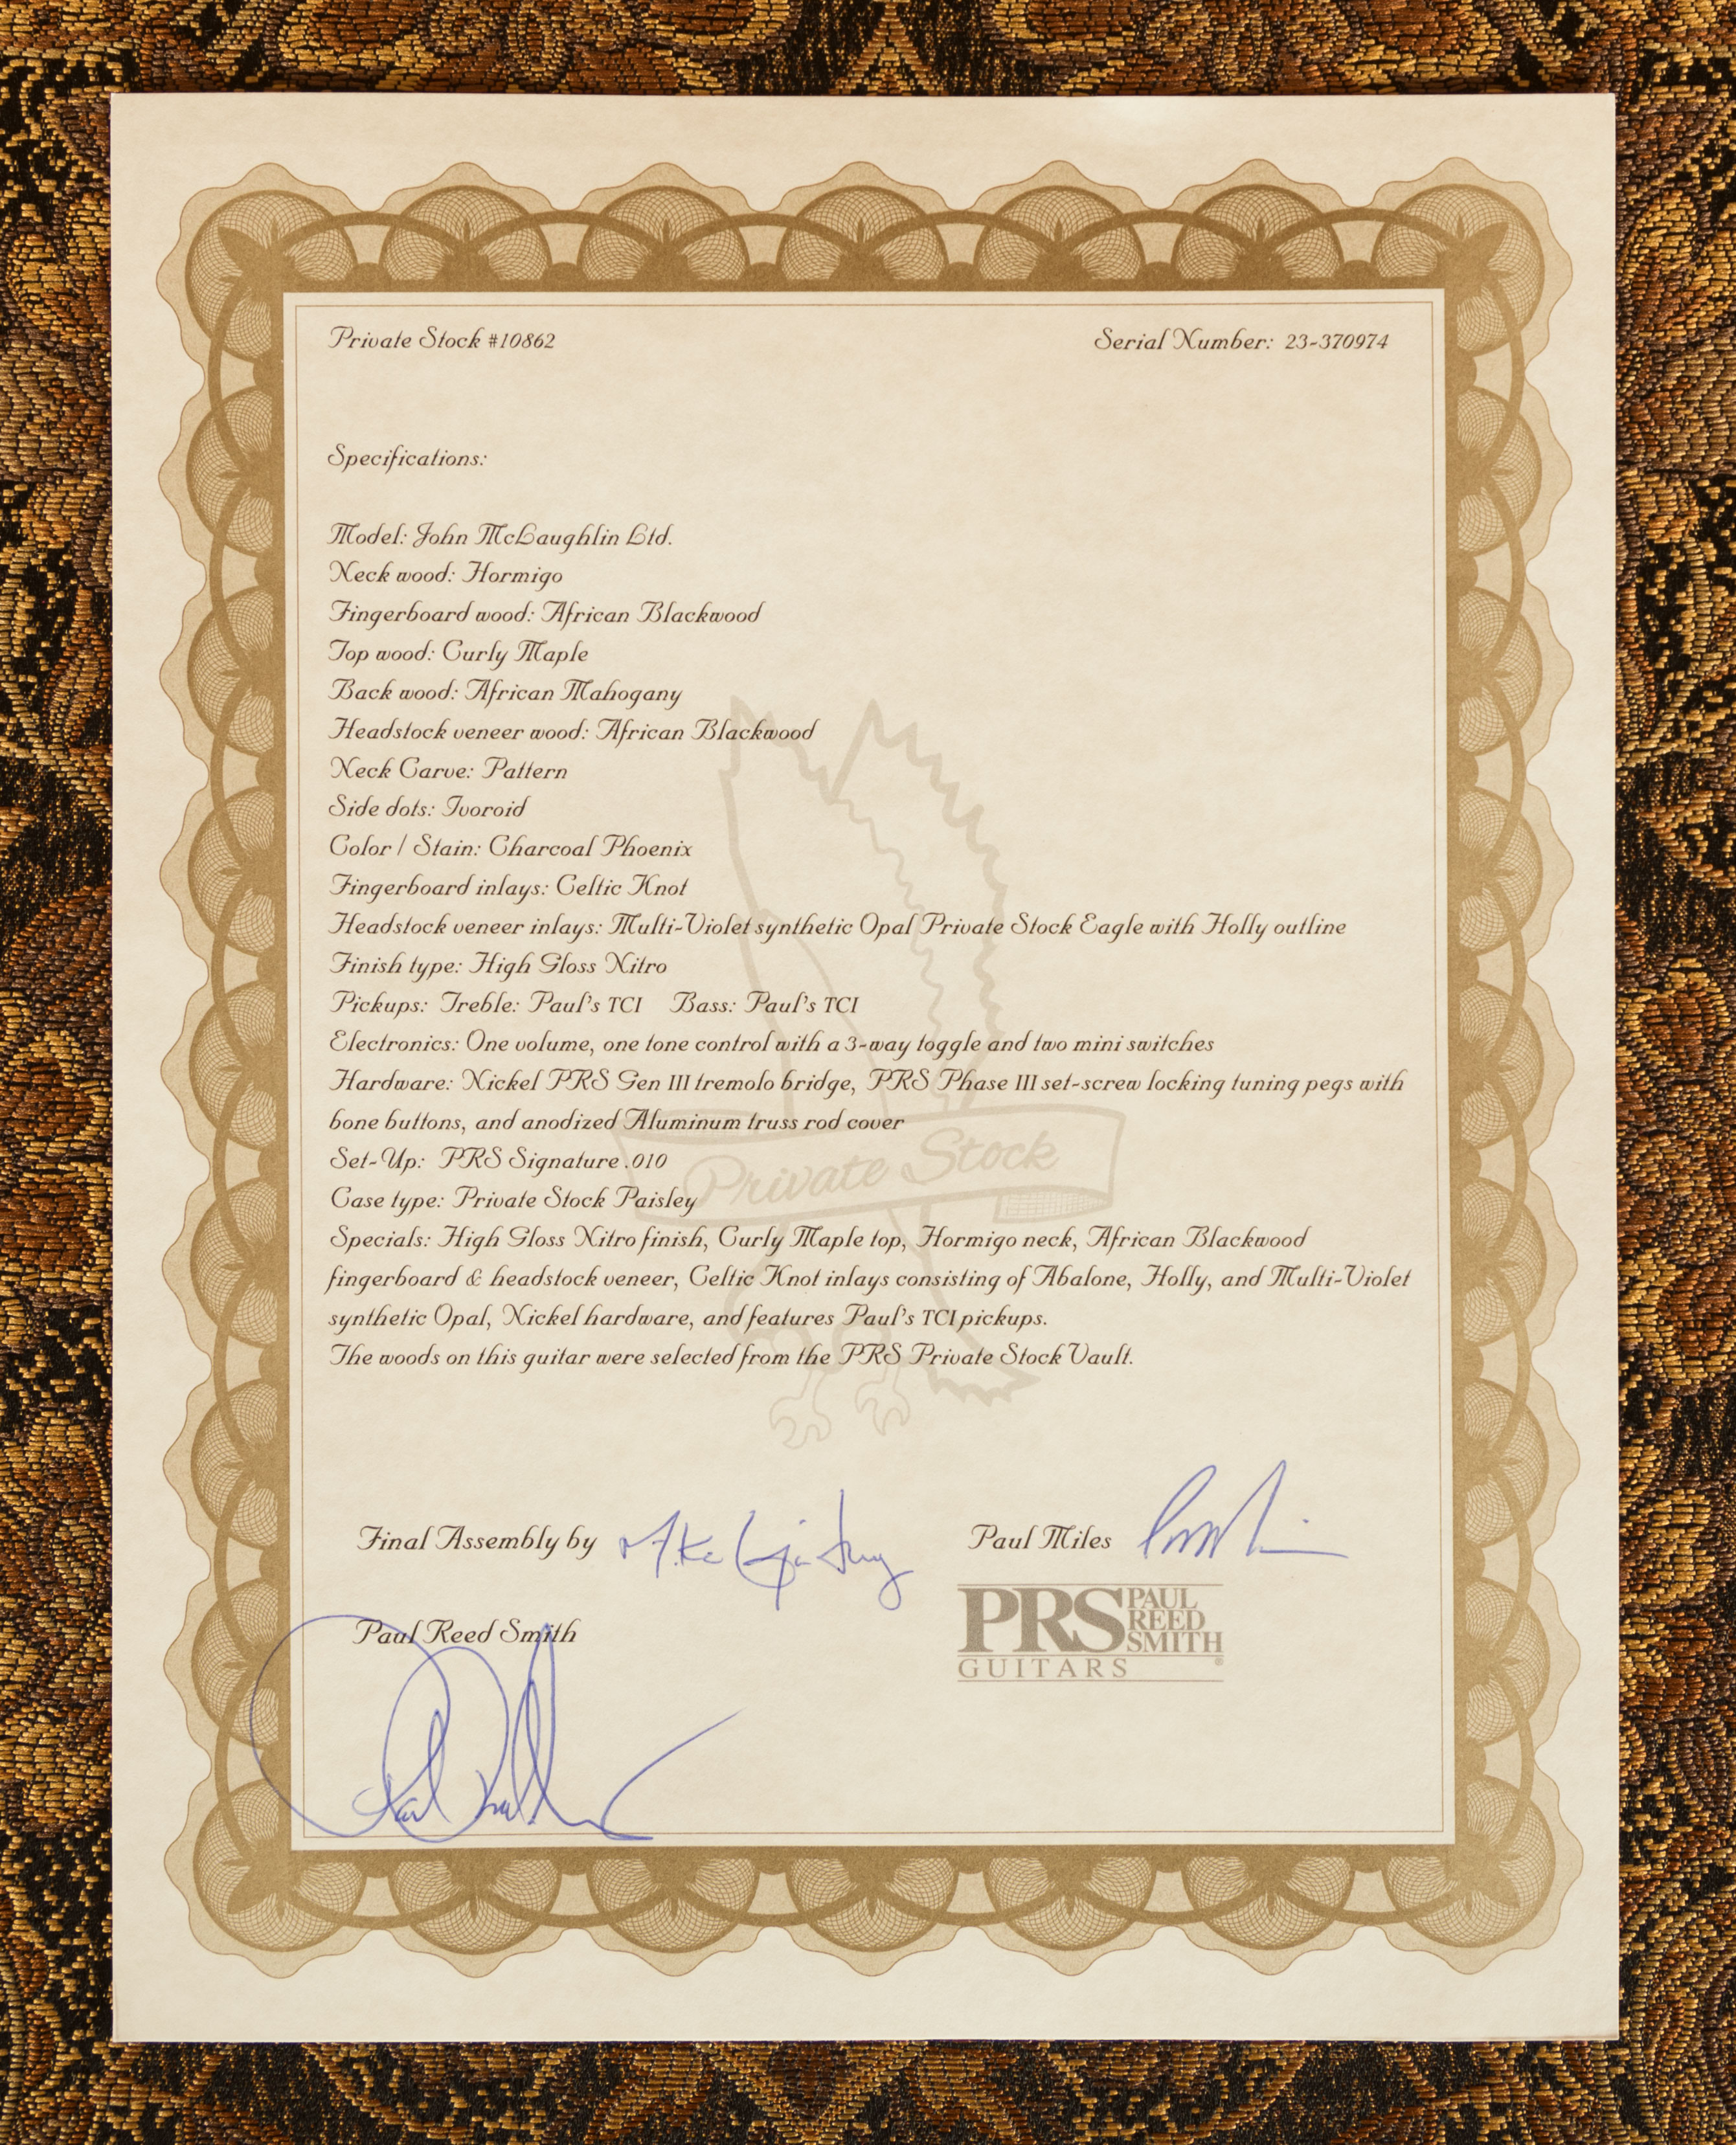 Private Stock #10862
Serial Number: 23-370974
Specifications:
Model: John McLaughlin Ltd.
Neck wood: Hormigo
Fingerboard wood: African Blackwood
Top wood: Curly Maple
Back wood: African Mahogany
Headstock veneer wood: African Blackwood
Neck Carve: Pattern
Side dots: Ivoroid
Color / Stain: Charcoal Phoenix
Fingerboard inlays: Celtic Knot
Headstock veneer inlays: Multi-Violet synthetic Opal Private Stock Eagle with Holly outline
Finish type: High Gloss Nitro
Pickups: Treble: Paul's TCI Bass: Paul's TCI
Electronics: One volume, one tone control with a 3-way toggle and two mini switches
Hardware: Nickel PRS Gen III tremolo bridge, PRS Phase III set-screw locking tuning pegs with
bone buttons, and anodized Aluminum truss rod cover
Set-Up: PRS Signature .010
Case type: Private Stock Paisley
Specials: High Gloss Nitro finish, Curly Maple top, Hormigo neck, African Blackwood
fingerboard & headstock veneer, Celtic Knot inlays consisting of Abalone, Holly, and Multi-Violet
synthetic Opal, Nickel hardware, and features Paul's TCI pickups.
The woods on this guitar were selected from the PRS Private Stock Vault.
Private Stock
Final Assembly by
Paul Miles
Paul Reed Smith
PRS PAUL
REED
SMITH
GUITARS ®